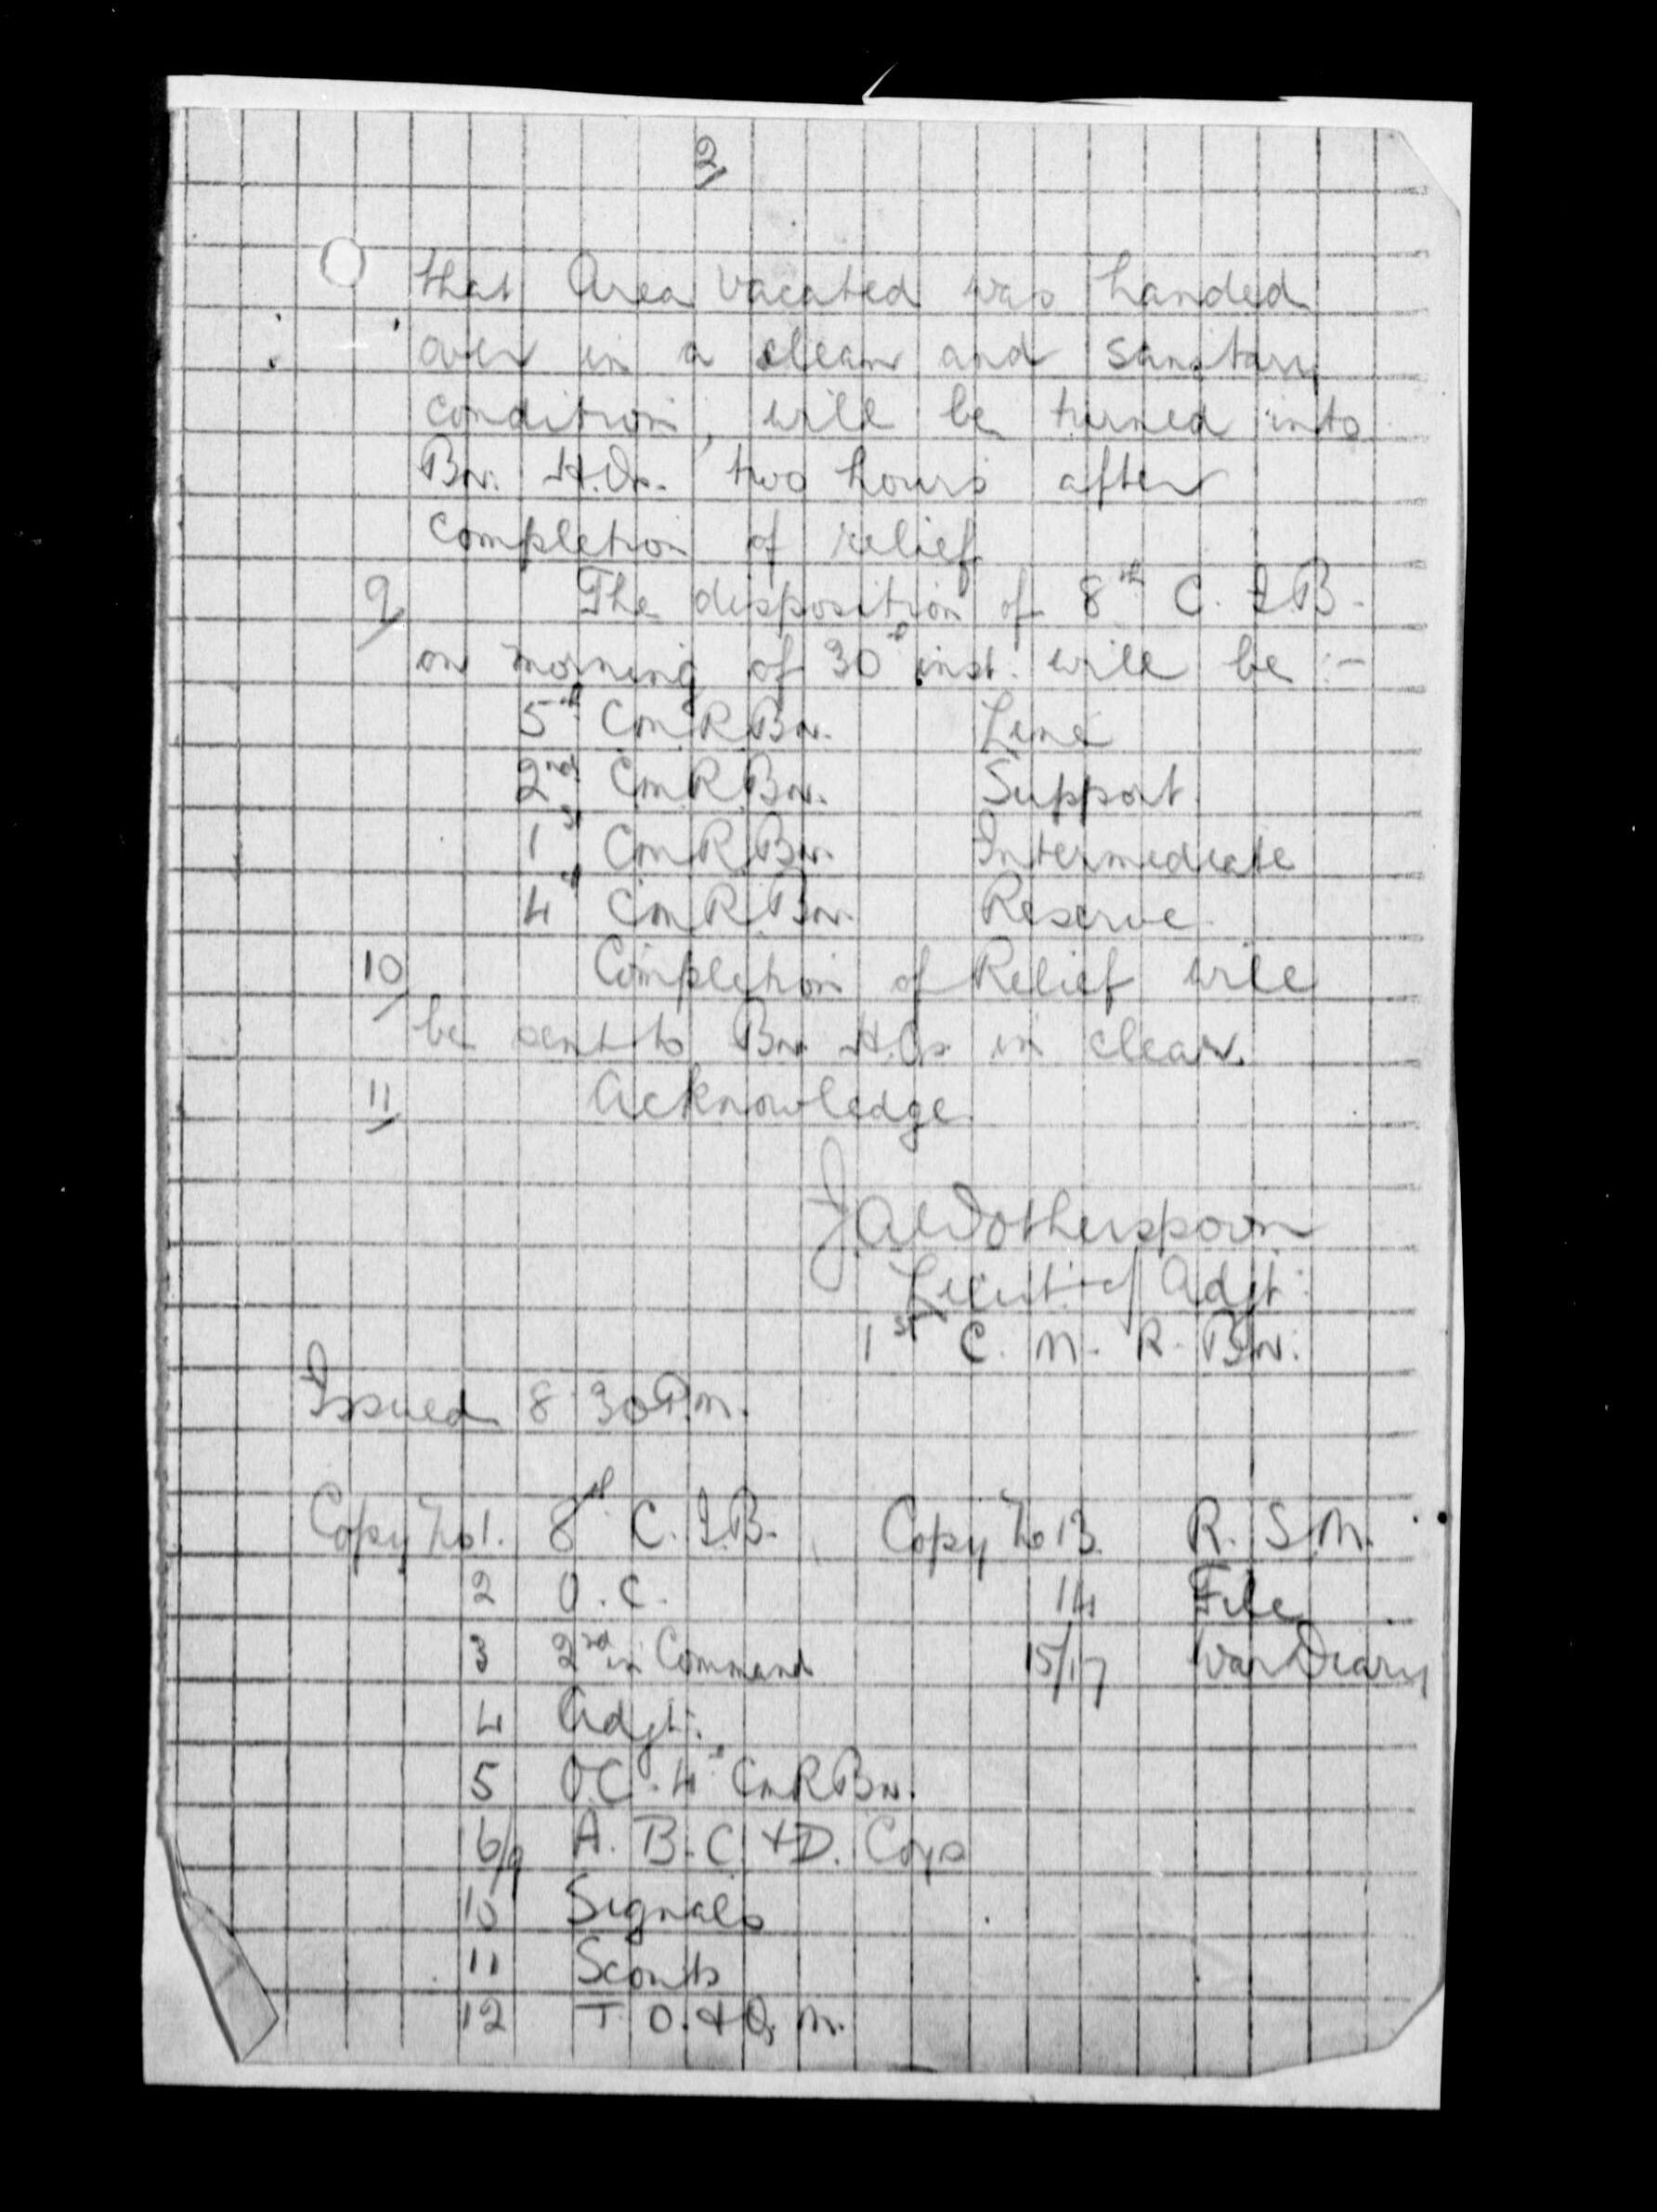 2/
that Area vacated was handed
over in a clean and sanitary
condition, will be turned into
Bn. H.Qs. two hours after
completion of relief.
9/ The disposition of 8th C. I B.
on morning of 30th inst. will be :-
5th C.M.R. Bn. Line
2nd C.M.R. Bn. Support.
1st C.M.R. Bn. Intermediate
4th C.M.R. Bn. Reserve.
10/ Completion of Relief will
be sent to Bn. H.Qs. in clear.
11/ Acknowledge.
J.A. Wotherspoon
Lieut. & Adjt.
1st C. M. R. Bn.
Issued 8 30 P.m.
Copy No 1. 8th C. I. B. Copy No 13. R. S. M.
2 O. C. 14 File
3 2nd in Command 15/17 War Diary
4 Adjt.
5 O.C. 4th C.M.R. Bn.
6/9 A. B. C. + D. Coys
10 Signals
11 Scouts
12 T. O. & Q. M.